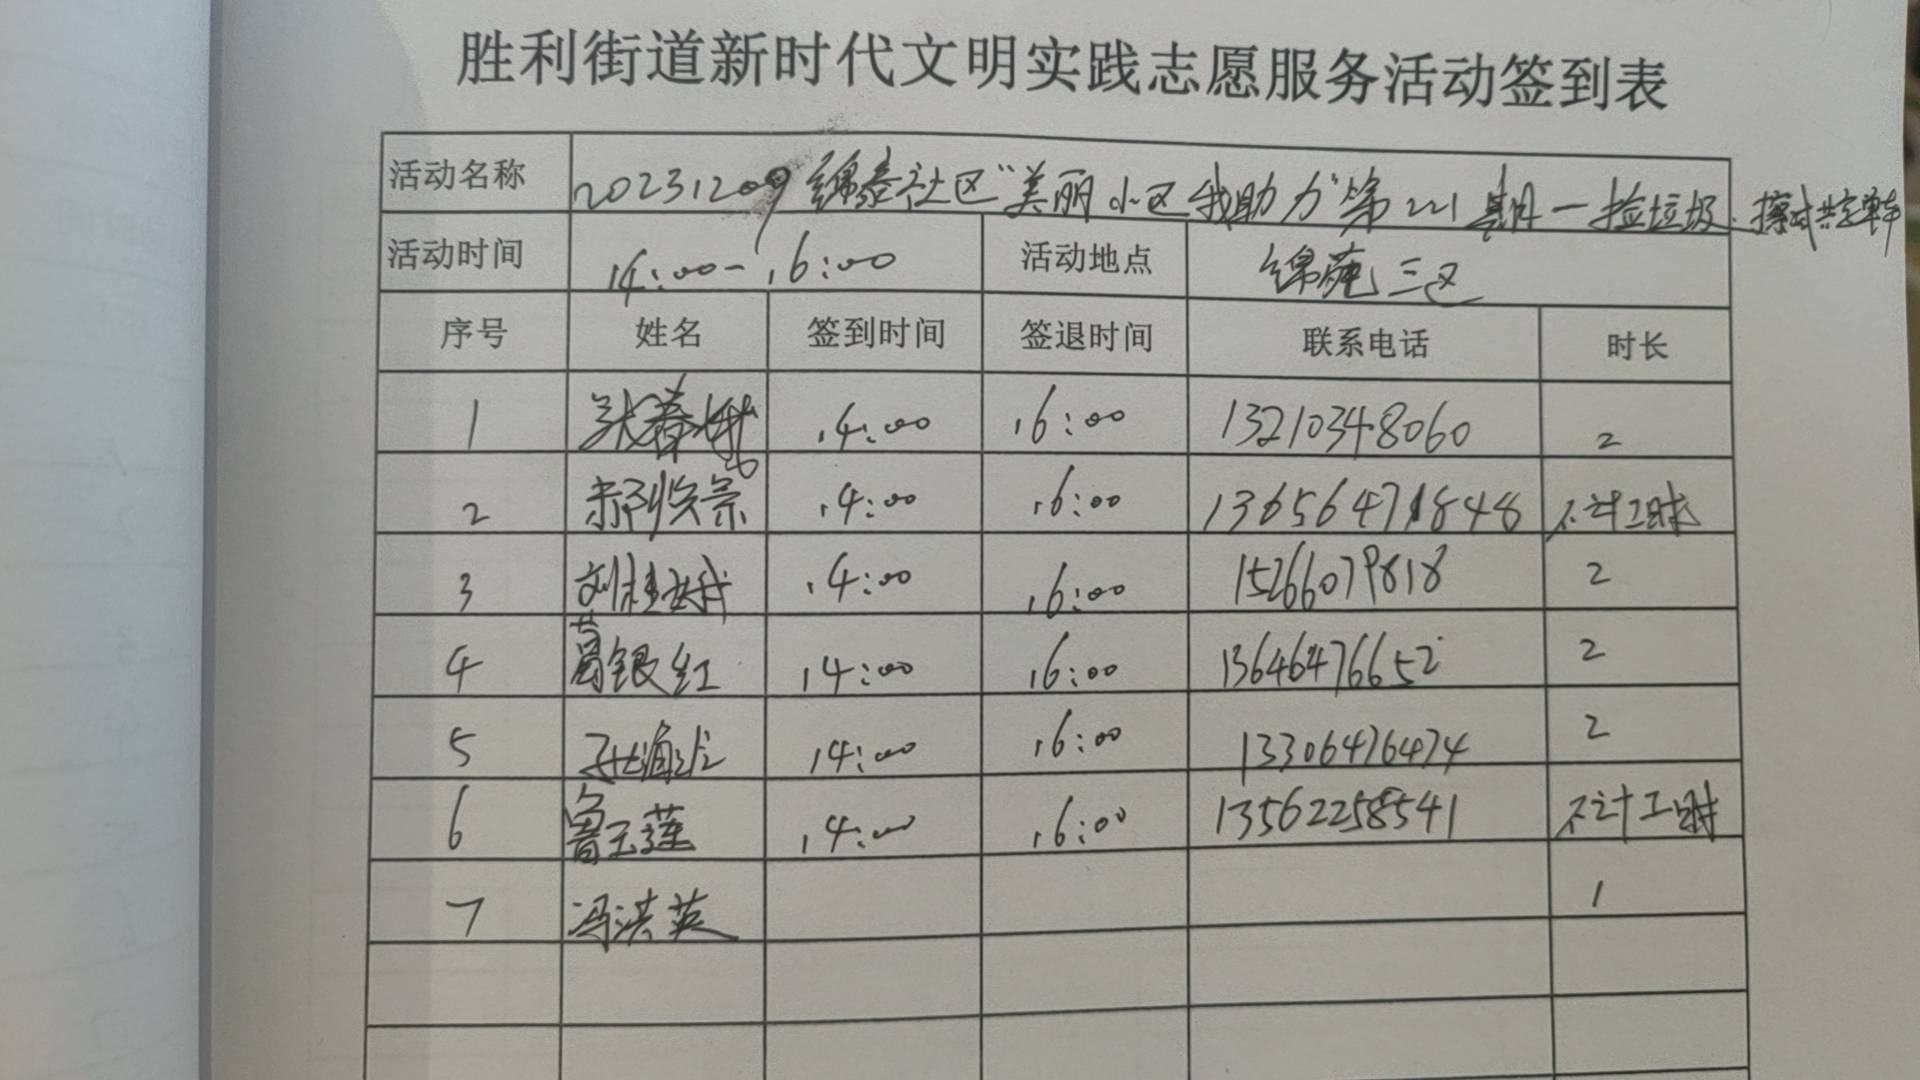 胜利街道新时代文明实践志愿服务活动签到表
活动名称 20231209 锦泰社区"美丽小区我助力"第221期—捡垃圾、擦共享单车
活动时间 14:00-16:00 活动地点 锦苑三区
序号 姓名 签到时间 签退时间 联系电话 时长
1 张春娥 14:00 16:00 13210348060 2
2 14:00 16:00 13656471848 不计工时
3 刘桂娥 14:00 16:00 15266079818 2
4 葛银红 14:00 16:00 13646476652 2
5 14:00 16:00 13306476474 2
6 鲁玉莲 14:00 16:00 13562258541 不计工时
7 冯洪英 1